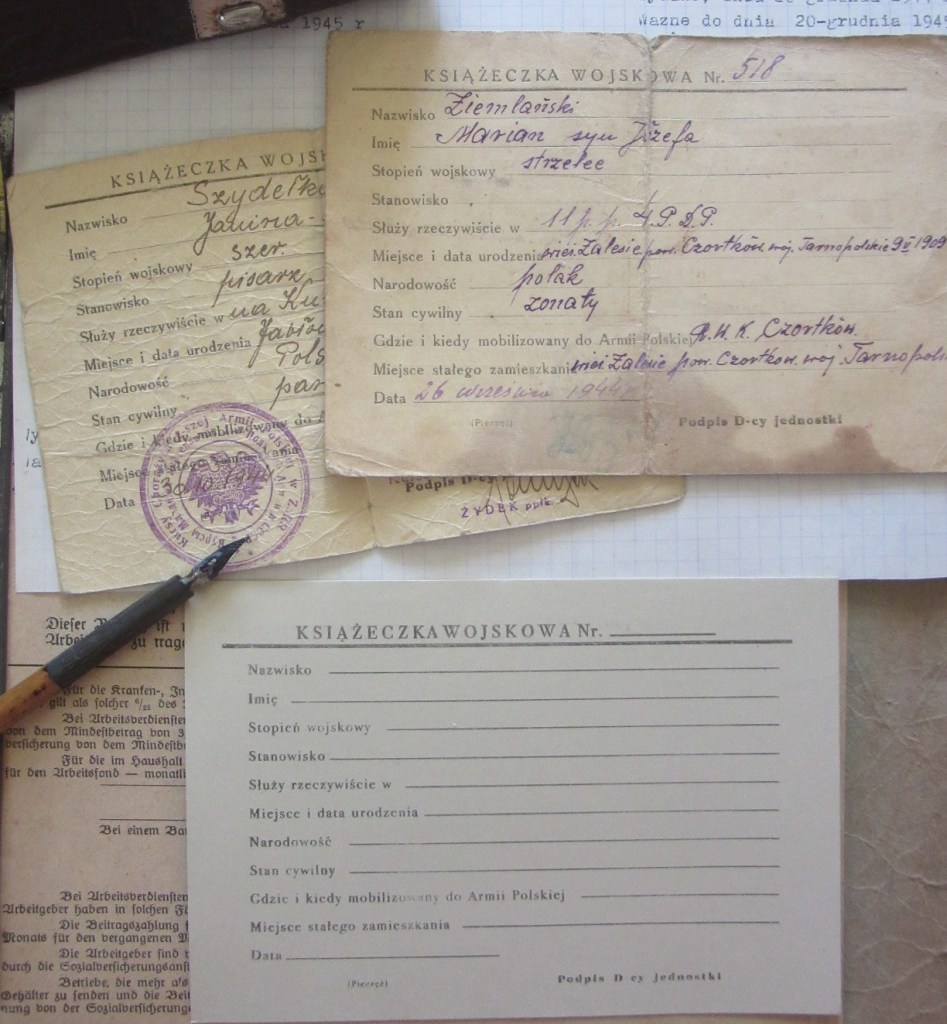 1945 r
Ważne do dnia 20-grudnia 194
KSIĄŻECZKA WOJSKOWA Nr. 518
Nazwisko Ziemlański
Imię Marian syn Józefa
Stopień wojskowy strzelec
Stanowisko
Służy rzeczywiście w 11 p. p. 4 P. D. P.
Miejsce i data urodzenia wieś Zalesie pow. Czortków woj. Tarnopolskie 9 V 1909
Narodowość polak
Stan cywilny żonaty
Gdzie i kiedy mobilizowany do Armii Polskiej R.W.K. Czortków.
Miejsce stałego zamieszkani wieś Zalesie pow. Czortków. woj Tarnopols
Data 26 września 1944 r
(Pieczęć) Podpis D-cy jednostki
KSIĄŻECZKA WOJSK
Nazwisko Szydełk
Imię Janina-
Stopień wojskowy szer.
Stanowisko pisarz
Służy rzeczywiście w na Ku
Miejsce i data urodzenia Jabło
Narodowość Pols
Stan cywilny pan
Gdzie i kiedy mobilizowany do
Miejsce stałego zamieszkania
Data 30.10.1944
Podpis D-c
ŻYDEK ppłk.
Dieser ist
Arbe zu trage
Für die Kranken-, In
gilt als solcher 6/25 des
Bei Arbeitsverdiensten
von dem Mindestbetrag von 3
versicherung von dem Mindestb
Für die im Haushalt
für den Arbeitsfond — monatli
Bei einem Ba
Bei Arbeitsverdiensten
Arbeitgeber haben in solchen Fä
Die Beitragszahlung
Monats für den vergangenen M
Die Arbeitgeber sind
durch die Sozialversicherungsanst
Betriebe, die mehr als
Gehälter zu senden und die Beit
nung von der Sozialversicherung
KSIĄŻECZKA WOJSKOWA Nr.
Nazwisko
Imię
Stopień wojskowy
Stanowisko
Służy rzeczywiście w
Miejsce i data urodzenia
Narodowość
Stan cywilny
Gdzie i kiedy mobilizowany do Armii Polskiej
Miejsce stałego zamieszkania
Data
(Pieczęć) Podpis D-cy jednostki